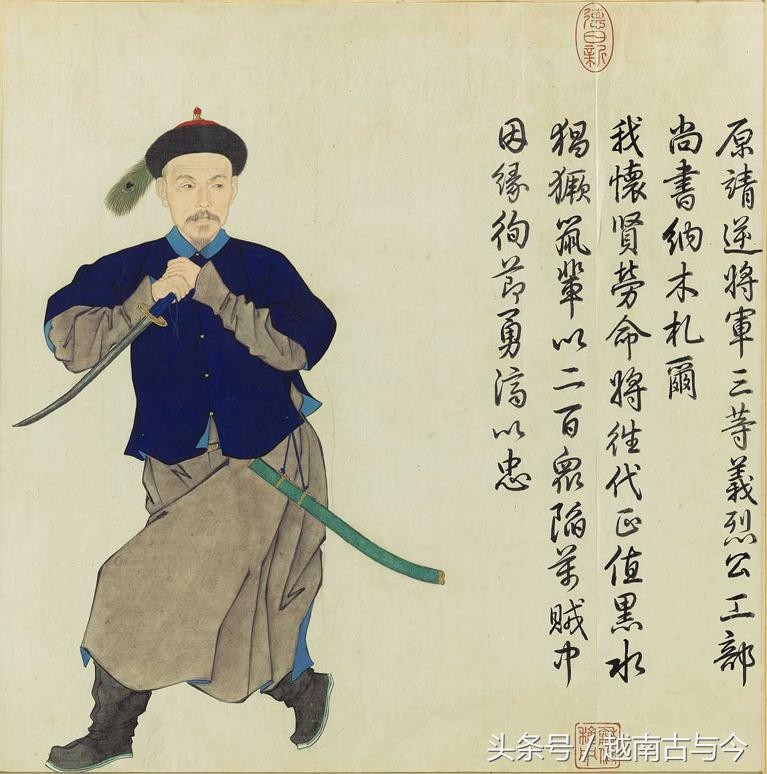 德日新
原靖逆將軍三等義烈公工部
尚書納木札爾
我懷賢勞命將徃代正值黑水
猖獗鼠輩以二百眾陷萬賊中
因緣徇節勇濟以忠
头条号 / 越南古与今